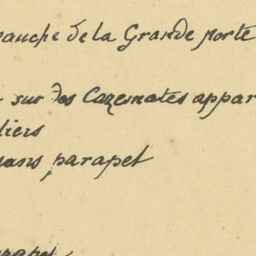 gauche de la Grande porte
sur des Cazemates appar
liers
sans parapet